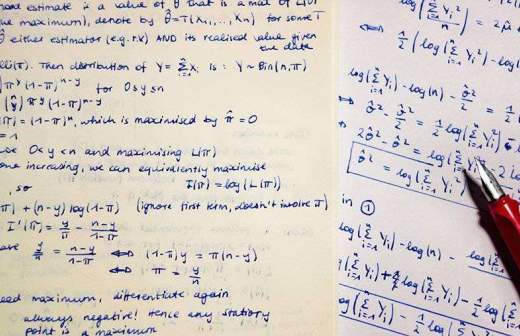 hood estimate is a value of θ that is a max of L(θ)
(the maximum), denote by θ̂ = T(X₁,..., Xₙ) for some T
θ̂ either estimator (e.g. r.v.) AND its realised value given
the data
Then distribution of Y = Σⁿᵢ₌₁ Xᵢ is : Y ~ Bin(n, π)
π^y (1-π)^{n-y} for 0≤y≤n
(n y) π^y (1-π)^{n-y}
(π) = (1-π)^n, which is maximised by π̂ = 0
= 1
0<y<n and maximising L(π)
one increasing, we can equivalently maximise
, so l(π) = log(L(π))
π) + (n-y) log(1-π) (ignore first term, doesn't involve π)
: l'(π) = y/π - (n-y)/(1-π)
y/π = (n-y)/(1-π) ⟺ (1-π)y = π(n-y)
⟺ π = y/n
maximum, differentiate again
always negative! Hence any stationary
point is a maximum
log(Σⁿᵢ₌₁ Yᵢ²/n) = 2μ̂
⟺ 1/2 (log(Σⁿᵢ₌₁ Yᵢ²) - log(n)
log(Σⁿᵢ₌₁ Yᵢ) - log(n) - σ̂²/2 = 1/2
⟺ σ̂² - σ̂²/2 = 1/2 log(Σⁿᵢ₌₁ Yᵢ²)
⟺ 2σ̂² - σ̂² = log(Σⁿᵢ₌₁ Yᵢ²) - 2 log
σ̂² = log(Σⁿᵢ₌₁ Yᵢ²)
in ①
log(Σⁿᵢ₌₁ Yᵢ) - log(n) - log(
Yᵢ) + 1/2 log(Σⁿᵢ₌₁ Yᵢ) - 1/2 log(
log(Σⁿᵢ₌₁ Yᵢ) - 1/2 log(